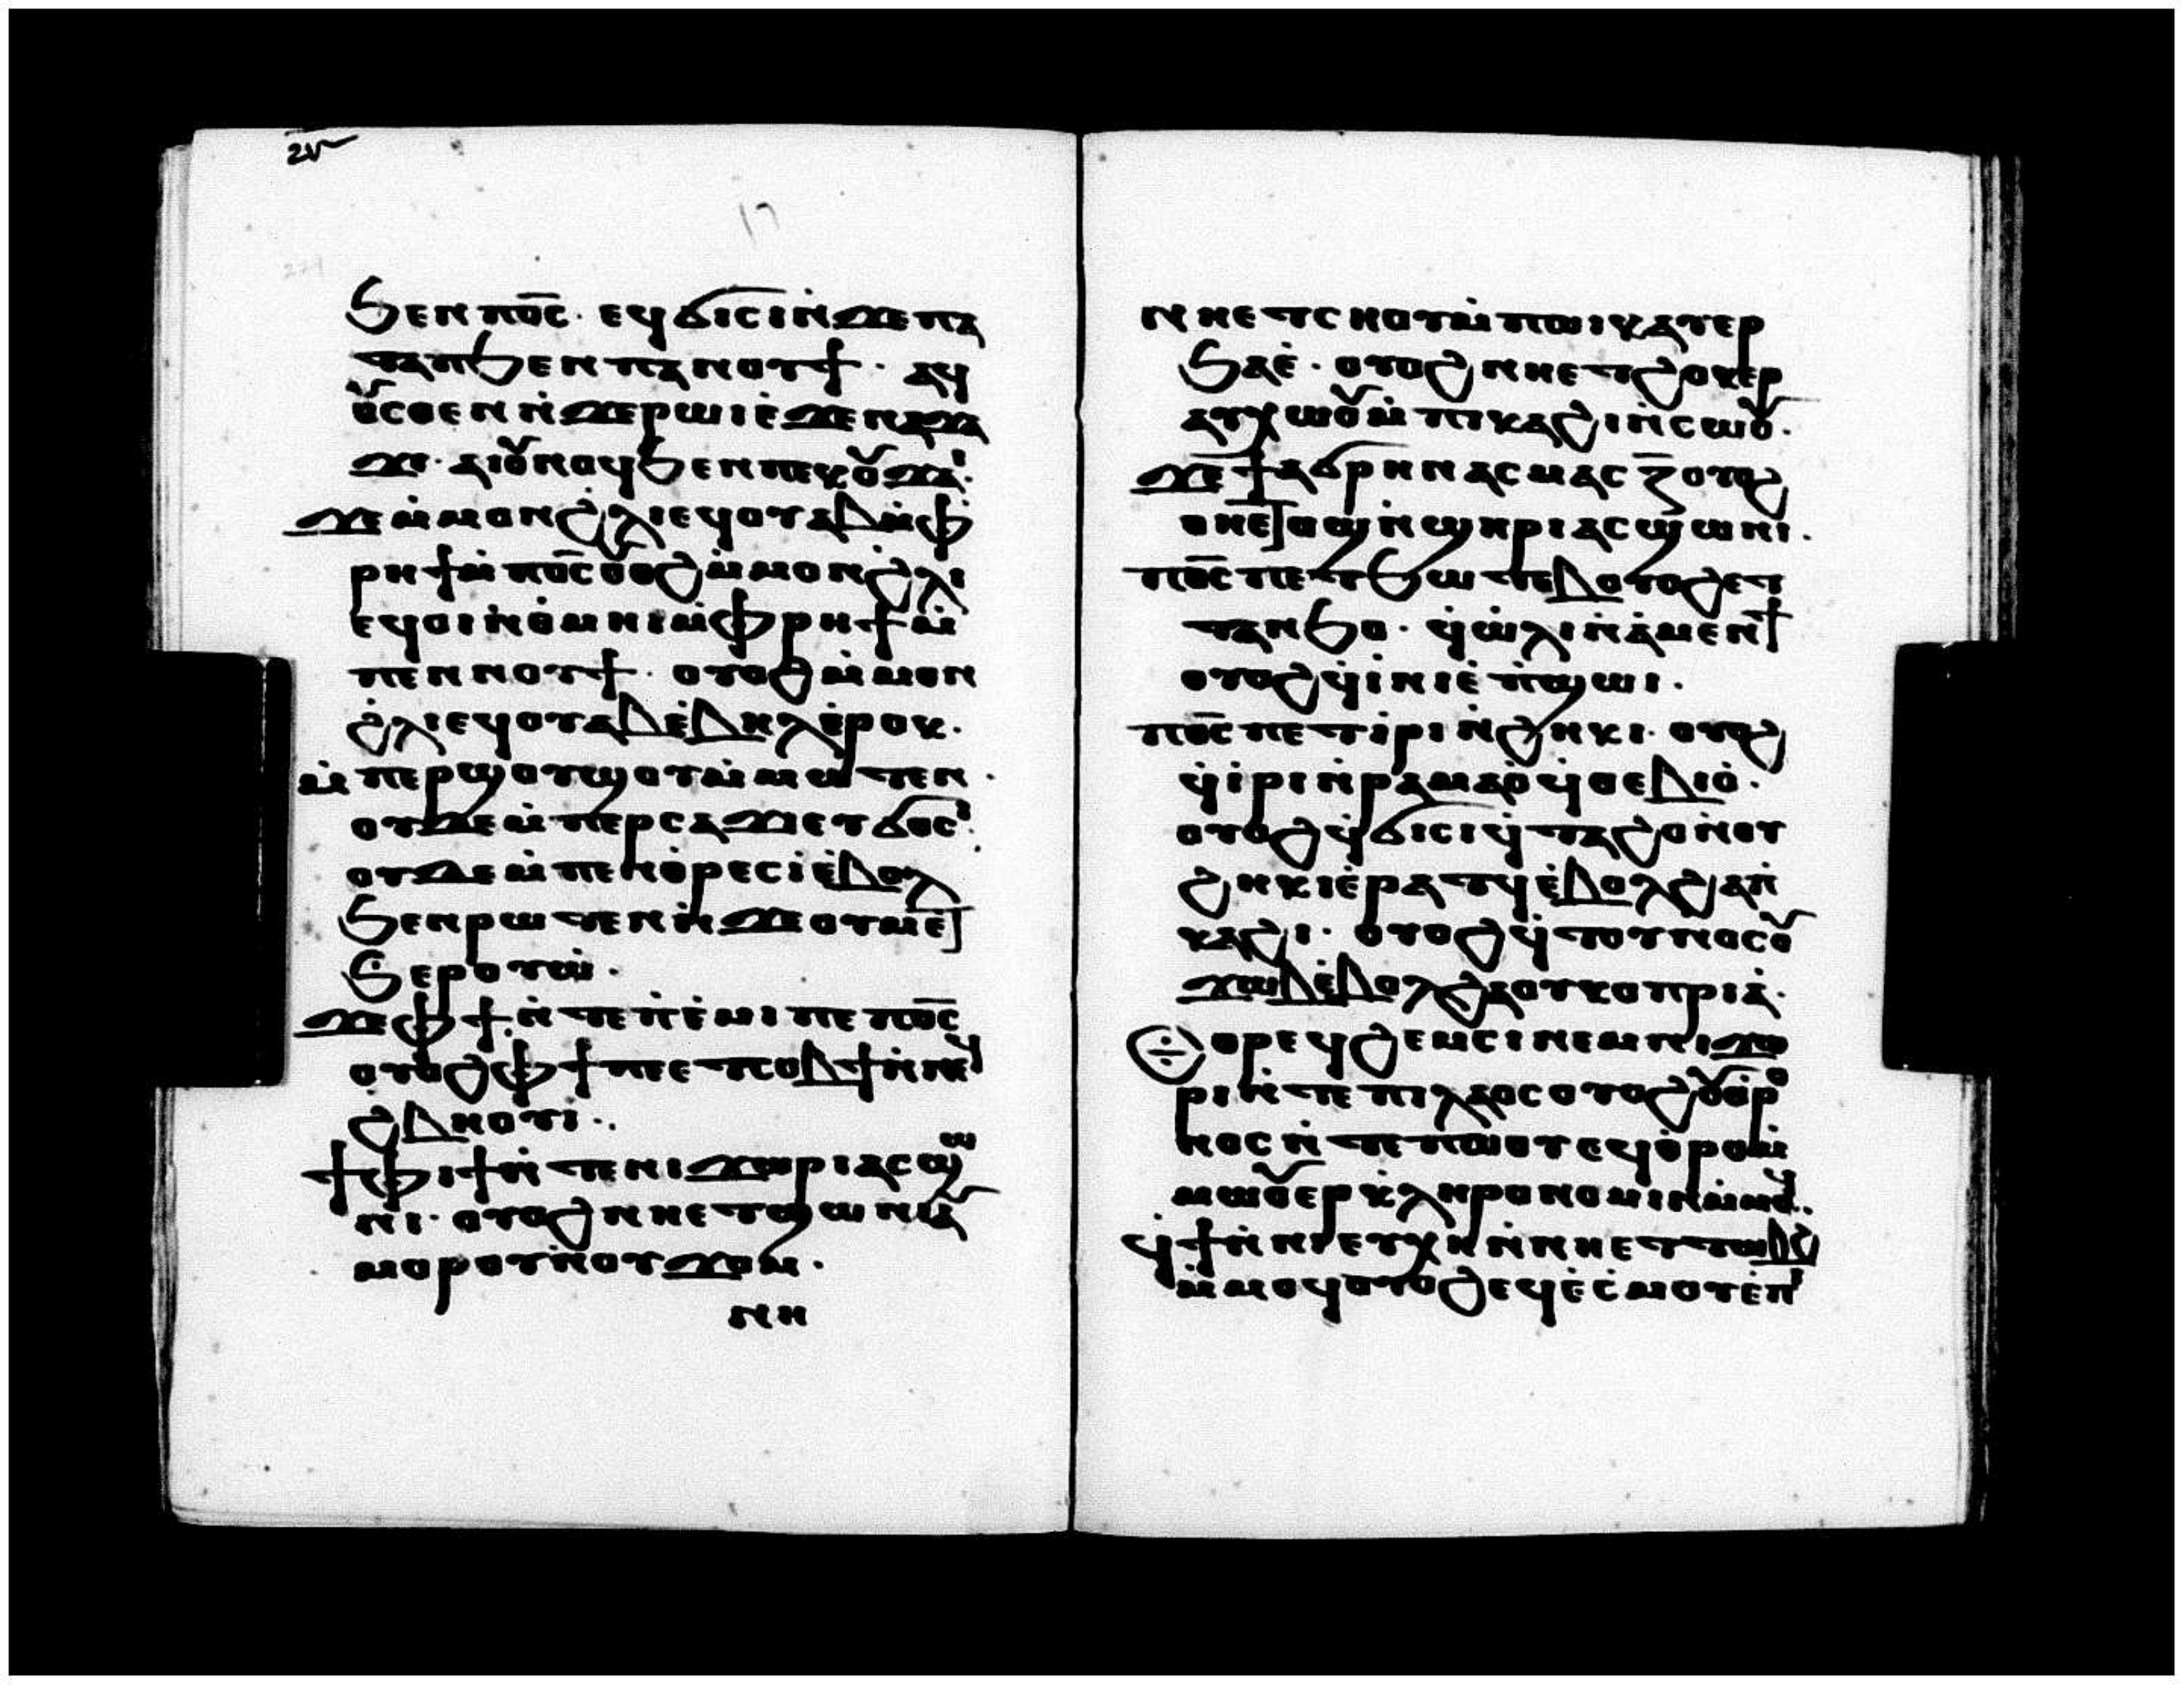 ϧⲉⲛ ⲡⲟ̅ⲥ̅· ⲉϥϭⲓⲥⲓ ⲛ̇ϫⲉ ⲡⲁ
ⲧⲁⲡ ϧⲉⲛ ⲡⲁⲛⲟⲩϯ· ⲁϥ
ⲟⲩⲥⲑⲉⲛ ⲛ̇ϫⲉ ⲣⲱⲓ ⲉ̇ϫⲉⲛ ⲛⲁϫⲁ
ϫⲓ· ⲁⲓⲟⲩⲛⲟϥ ϧⲉⲛ ⲡⲉⲕⲟⲩϫⲁⲓ:
ϫⲉ ⲙ̇ⲙⲟⲛ ϩ̇ⲗⲓ ⲉϥⲟⲩⲁⲃ ⲙ̇ⲫ
ⲣⲏϯ ⲙ̇ⲡⲟ̅ⲥ̅ ⲟⲩⲟϩ ⲙ̇ⲙⲟⲛ ϩ̇ⲗⲓ
ⲉϥⲟⲓ ⲛ̇ⲑ̇ⲙⲏⲓ ⲙ̇ⲫⲣⲏϯ ⲙ̇
ⲡⲉⲛⲛⲟⲩϯ· ⲟⲩⲟϩ ⲙ̇ⲙⲟⲛ
ϩ̇ⲗⲓ ⲉϥⲟⲩⲁⲃ ⲉ̇ⲃⲏⲗ ⲉ̇ⲣⲟⲕ·
ⲙ̇ⲡⲉⲣϣⲟⲩϣⲟⲩ ⲙ̇ⲙⲱⲧⲉⲛ·
ⲟⲩⲇⲉ ⲙ̇ⲡⲉⲣⲥⲁϫⲓ ⲉⲩϭⲟⲥⲓ:
ⲟⲩⲇⲉ ⲙ̇ⲡⲉⲛⲑ̇ⲣⲉⲥⲓ ⲉ̇ⲃⲟⲗ
ϧⲉⲛ ⲣⲱⲧⲉⲛ ⲛ̇ϫⲉ ⲟⲩⲙⲉⲧ
ϧⲉⲣⲟⲩⲱ̇·
ϫⲉ ⲫϯ ⲛ̇ⲧⲉ ⲡ̇ⲉ̇ⲙⲓ ⲡⲉ ⲡⲟ̅ⲥ̅
ⲟⲩⲟϩ ⲫϯ ⲡⲉⲧⲥⲟⲃϯ ⲛ̇ⲛⲉϥ
ϩⲃⲏⲟⲩⲓ̇·.
ϯⲫⲓϯ ⲛ̇ⲧⲉ ⲛⲓϫⲱⲣⲓ ⲁⲥϣⲱ
ⲛⲓ· ⲟⲩⲟϩ ⲛⲏⲉⲧϣⲱⲛⲓ ⲁⲩ
ⲙⲟⲣⲟⲩ ⲛ̇ⲟⲩϫⲟⲙ·
ⲛⲏ
ⲛⲏⲉⲧⲥⲏⲟⲩ ⲙ̇ⲡⲱⲓⲕ ⲁⲩⲉⲣ
ϧⲁⲉ̇· ⲟⲩⲟϩ ⲛⲏⲉⲧϩⲟⲕⲉⲣ
ⲁⲩⲭⲱⲟⲩ ⲙ̇ⲡⲓⲕⲁϩⲓ ⲛ̇ⲥⲱⲟⲩ·
ϫⲉ ϯⲁϭⲣⲏⲛ ⲁⲥⲙⲁⲥ ⲍ̅ ⲟⲩⲟϩ
ⲑⲏⲉⲧⲟϣ ⲛ̇ϣⲏⲣⲓ ⲁⲥϣⲱⲛⲓ·
ⲡⲟ̅ⲥ̅ ⲡⲉⲧϧⲱⲧⲉⲃ ⲟⲩⲟϩ ⲉⲧ
ⲧⲁⲛϧⲟ· ϥ̇ⲱ̇ⲗⲓ ⲛ̇ⲁ̇ⲙⲉⲛϯ
ⲟⲩⲟϩ ϥ̇ⲓ̇ⲛⲓ ⲉ̇ⲡ̇ϣⲱⲓ·
ⲡⲟ̅ⲥ̅ ⲡⲉⲧⲓ̇ⲣⲓ ⲛ̇ϩⲏⲕⲓ· ⲟⲩⲟϩ
ϥ̇ⲓ̇ⲣⲓ ⲛ̇ⲣⲁⲙⲁⲟ̇ ϥ̇ⲑⲉⲃⲓⲟ̇·
ⲟⲩⲟϩ ϥ̇ϭⲓⲥⲓ ϥ̇ⲧⲁϩⲟ ⲛ̇ⲟⲩ
ϩⲏⲕⲓ ⲉ̇ⲣⲁⲧϥ ⲉ̇ⲃⲟⲗ ϩⲁ ⲡ̇
ⲕⲁϩⲓ· ⲟⲩⲟϩ ϥ̇ⲧⲟⲩⲛⲟⲥ ⲟⲩ
ϫⲱⲃ ⲉ̇ⲃⲟⲗ ϩⲁ ⲟⲩⲕⲟⲡⲣⲓⲁ̇·
Ⲑⲣⲉϥϩⲉⲙⲥⲓ ⲛⲉⲙ ⲛⲓϫⲱ
ⲣⲓ ⲛ̇ⲧⲉ ⲡⲓⲗⲁⲟⲥ ⲟⲩⲟϩ ⲟⲩⲑⲣⲟ
ⲛⲟⲥ ⲛ̇ⲧⲉ ⲡⲱⲟⲩ ⲉϥⲑⲣⲟ ⲙ̇
ⲙⲱⲟⲩ ⲉⲣⲕⲗⲏⲣⲟⲛⲟⲙⲓⲛ ⲙ̇ⲙⲟϥ·
ϥ̇ϯ ⲛ̇ⲛⲓⲉⲩⲭⲏ ⲛ̇ⲛⲏⲉⲧⲧⲱⲃϩ
ⲙ̇ⲙⲟϥ ⲟⲩⲟϩ ⲉϥⲉ̇ⲥ̇ⲙⲟⲩ ⲉ̇ⲡ